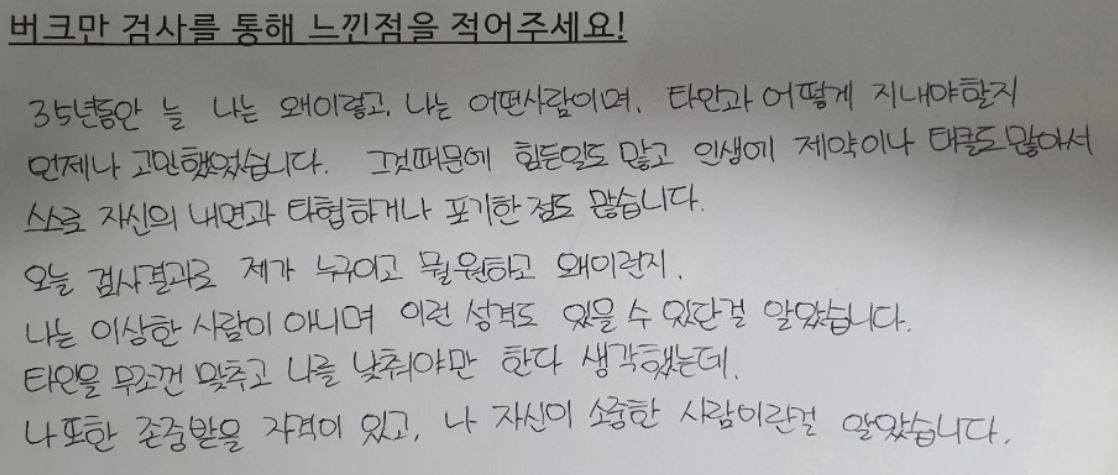 버크만 검사를 통해 느낀점을 적어주세요!
35년동안 늘 나는 왜이렇고, 나는 어떤사람이며, 타인과 어떻게 지내야할지
언제나 고민했었습니다. 그것때문에 힘든일도 많고 인생에 제약이나 태클도 많아서
스스로 자신의 내면과 타협하거나 포기한 점도 많습니다.
오늘 검사결과로 제가 누구이고 뭘원하고 왜이런지,
나는 이상한 사람이 아니며 이런 성격도 있을 수 있단걸 알았습니다.
타인을 무조건 맞추고 나를 낮춰야만 한다 생각했는데,
나 또한 존중받을 자격이 있고, 나 자신이 소중한 사람이란걸 알았습니다.